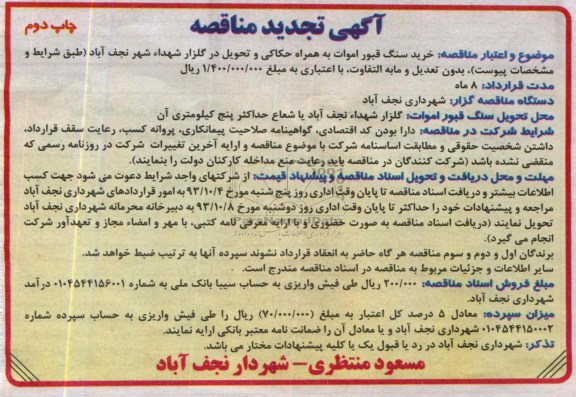 آگهی تجدید مناقصه
چاپ دوم
موضوع و اعتبار مناقصه: خرید سنگ قبور اموات به همراه حکاکی و تحویل در گلزار شهداء شهر نجف آباد (طبق شرایط و
مشخصات پیوست)، بدون تعدیل و مابه التفاوت، با اعتباری به مبلغ ۱/۴۰۰/۰۰۰/۰۰۰ ریال
مدت قرارداد: ۸ ماه
دستگاه مناقصه گزار: شهرداری نجف آباد
محل تحویل سنگ قبور اموات: گلزار شهداء نجف آباد یا شعاع حداکثر پنج کیلومتری آن
شرایط شرکت در مناقصه: دارا بودن کد اقتصادی، گواهینامه صلاحیت پیمانکاری، پروانه کسب، رعایت سقف قرارداد،
داشتن شخصیت حقوقی و مطابقت اساسنامه شرکت با موضوع مناقصه و ارایه آخرین تغییرات شرکت در روزنامه رسمی که
منقضی نشده باشد (شرکت کنندگان در مناقصه باید رعایت منع مداخله کارکنان دولت را بنمایند).
مهلت و محل دریافت و تحویل اسناد مناقصه و پیشنهاد قیمت: از شرکتهای واجد شرایط دعوت می شود جهت کسب
اطلاعات بیشتر و دریافت اسناد مناقصه تا پایان وقت اداری روز پنج شنبه مورخ ۹۳/۱۰/۴ به امور قراردادهای شهرداری نجف آباد
مراجعه و پیشنهادات خود را حداکثر تا پایان وقت اداری روز دوشنبه مورخ ۹۳/۱۰/۸ به دبیرخانه محرمانه شهرداری نجف آباد
تحویل نمایند (دریافت اسناد مناقصه به صورت حضوری و با ارایه معرفی نامه کتبی، با مهر و امضاء مجاز و تعهدآور شرکت
انجام می گیرد).
برندگان اول و دوم و سوم مناقصه هر گاه حاضر به انعقاد قرارداد نشوند سپرده آنها به ترتیب ضبط خواهد شد.
سایر اطلاعات و جزئیات مربوط به مناقصه در اسناد مناقصه مندرج است.
مبلغ فروش اسناد مناقصه: ۲۰۰/۰۰۰ ریال طی فیش واریزی به حساب سیبا بانک ملی به شماره ۰۱۰۴۵۴۴۱۵۶۰۰۱ درآمد
شهرداری نجف آباد.
میزان سپرده: معادل ۵ درصد کل اعتبار به مبلغ (۷۰/۰۰۰/۰۰۰) ریال را طی فیش واریزی به حساب سپرده شماره
۰۱۰۴۵۴۴۱۵۰۰۰۲ شهرداری نجف آباد و یا معادل آن را ضمانت نامه معتبر بانکی ارایه نمایند.
تذکر: شهرداری نجف آباد در رد یا قبول یک یا کلیه پیشنهادات مختار می باشد.
مسعود منتظری - شهردار نجف آباد